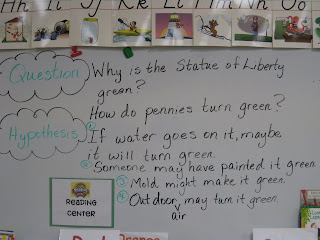 Hh Ii Jj Kk Ll Mm Nn Oo
Question
Why is the Statue of Liberty
green?
How do pennies turn green?
Hypothesis
① If water goes on it, maybe
it will turn green.
② Someone may have painted it green
③ Mold might make it green.
④ Outdoor air may turn it green.
READING
CENTER